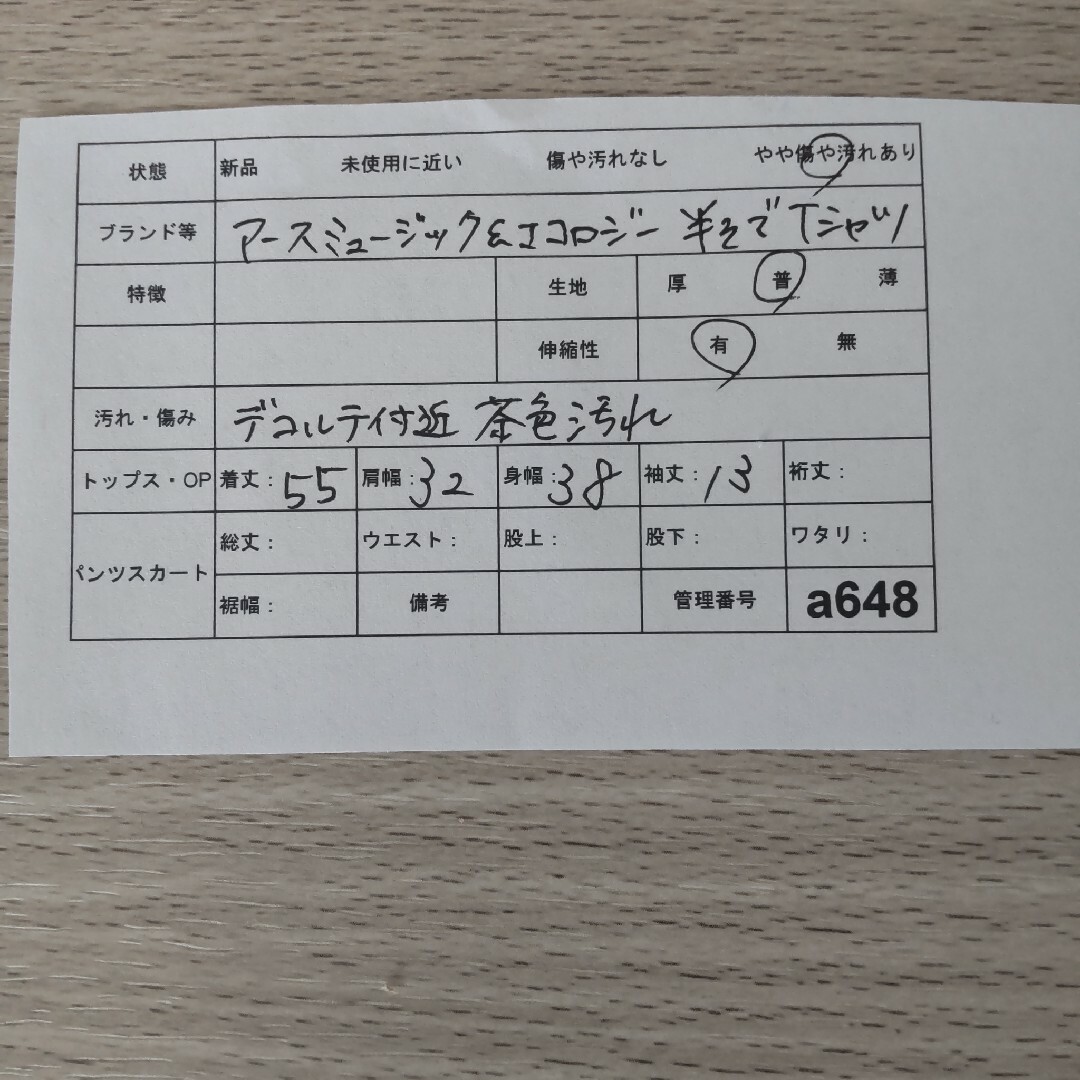 状態 新品 未使用に近い 傷や汚れなし やや傷や汚れあり
ブランド等 アースミュージック&エコロジー 半そでTシャツ
特徴 生地 厚 普 薄
伸縮性 有 無
汚れ・傷み デコルテ付近 茶色汚れ
トップス・OP 着丈:55 肩幅:32 身幅:38 袖丈:13 裄丈:
パンツスカート 総丈: ウエスト: 股上: 股下: ワタリ:
裾幅: 備考 管理番号 a648